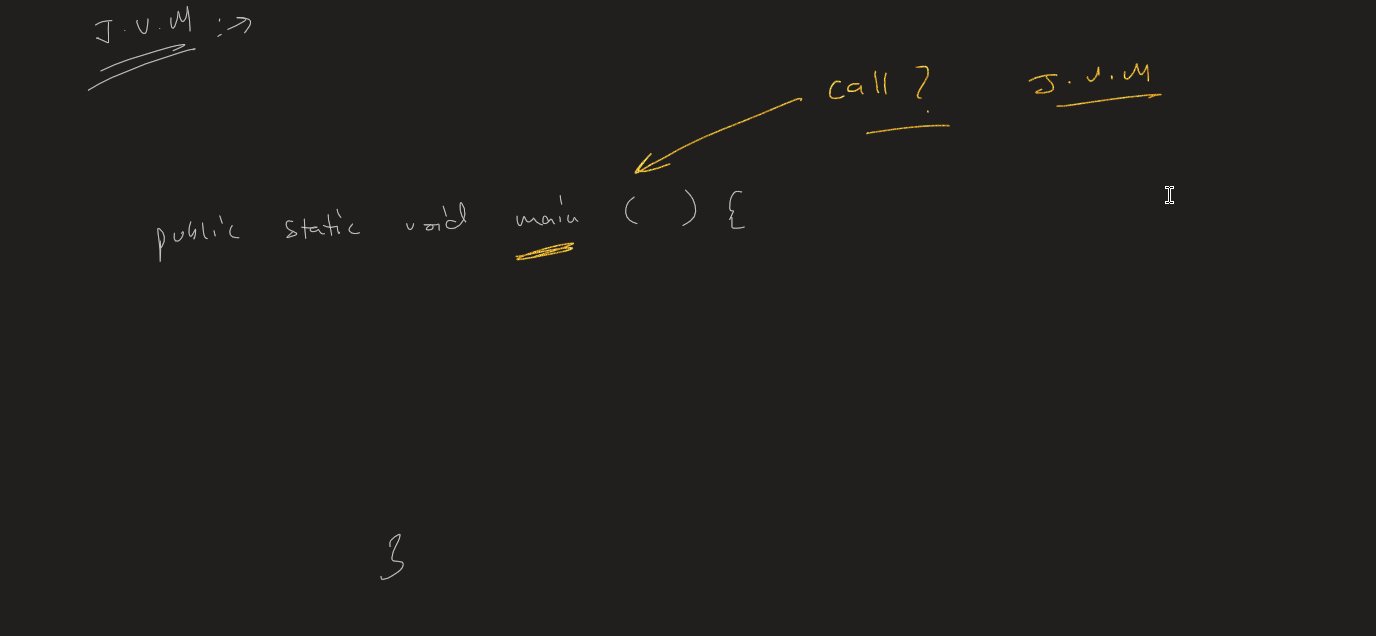 J.V.M :->
call ? J.V.M
public static void main ( ) {
}